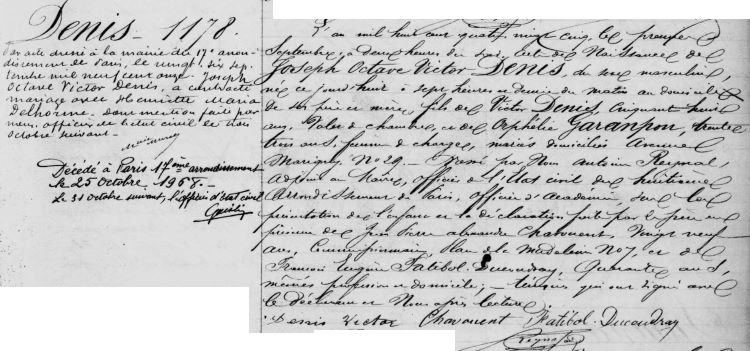 Denis - 1178.
Par acte dressé à la mairie du 17e arron-
dissement de Paris, le vingt six sep-
tembre mil neuf cent onze. Joseph
Octave Victor Denis, a contracté
mariage avec Henriette Maria
Delhorme, dont mention faite par
nous, officier de l'état civil le trois
octobre suivant.
Décédé à Paris 17ème arrondissement
le 25 octobre 1968.-
Le 31 octobre suivant, l'officier d'état civil
L'an mil huit cent quatre vingt cinq, le premier
Septembre, à deux heures du soir, acte de Naissance de
Joseph Octave Victor Denis, du sexe masculin,
né ce jourd'hui à sept heures et demie du matin au domicile
de ses père et mère, fils de Victor Denis, cinquante huit
ans, Valet de chambre, et de Orphélie Garanpon, trente
trois ans, femme de charge, mariés domiciliés avenue
Marigny No 29. - Dressé par Nous Antoine
adjoint au Maire, officier de l'Etat civil du huitième
Arrondissement de Paris, officier d'Académie, sur la
présentation de l'enfant et la déclaration faite par le père en
présence de Jean Pierre Alexandre Chavouent, Vingt neuf
ans, Commissionnaire, Place de la Madeleine No 7, et de
François Eugène Fatébol-Ducoudray, Quarante ans,
mêmes profession et domicile; - témoins qui ont signé avec
le déclarant et Nous après lecture.
Denis Victor Chavouent Fatébol-Ducoudray